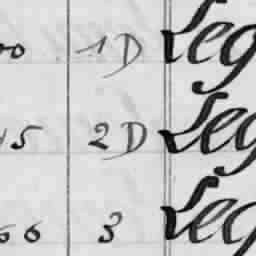 00 1D Leg
45 2D Leg
66 3 Leg